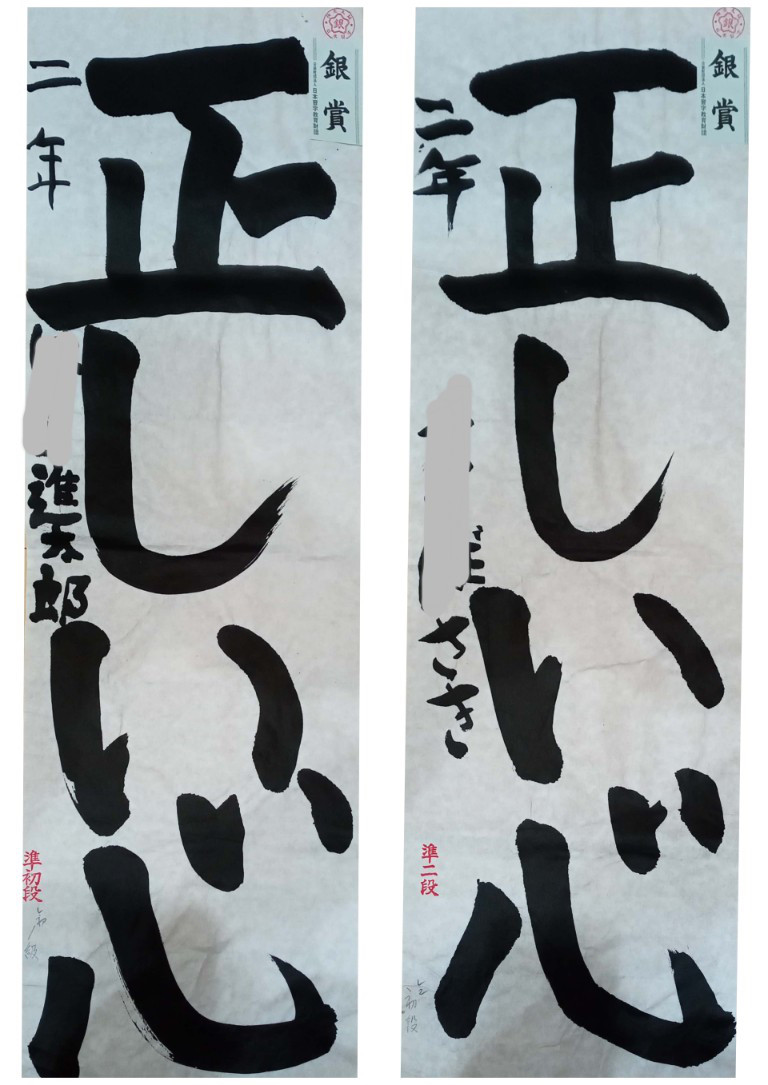 銀
銀賞
日本習字教育財団
正しい心
二年
進太郎
準初段
銀
銀賞
日本習字教育財団
正しい心
二年
さき
準二段